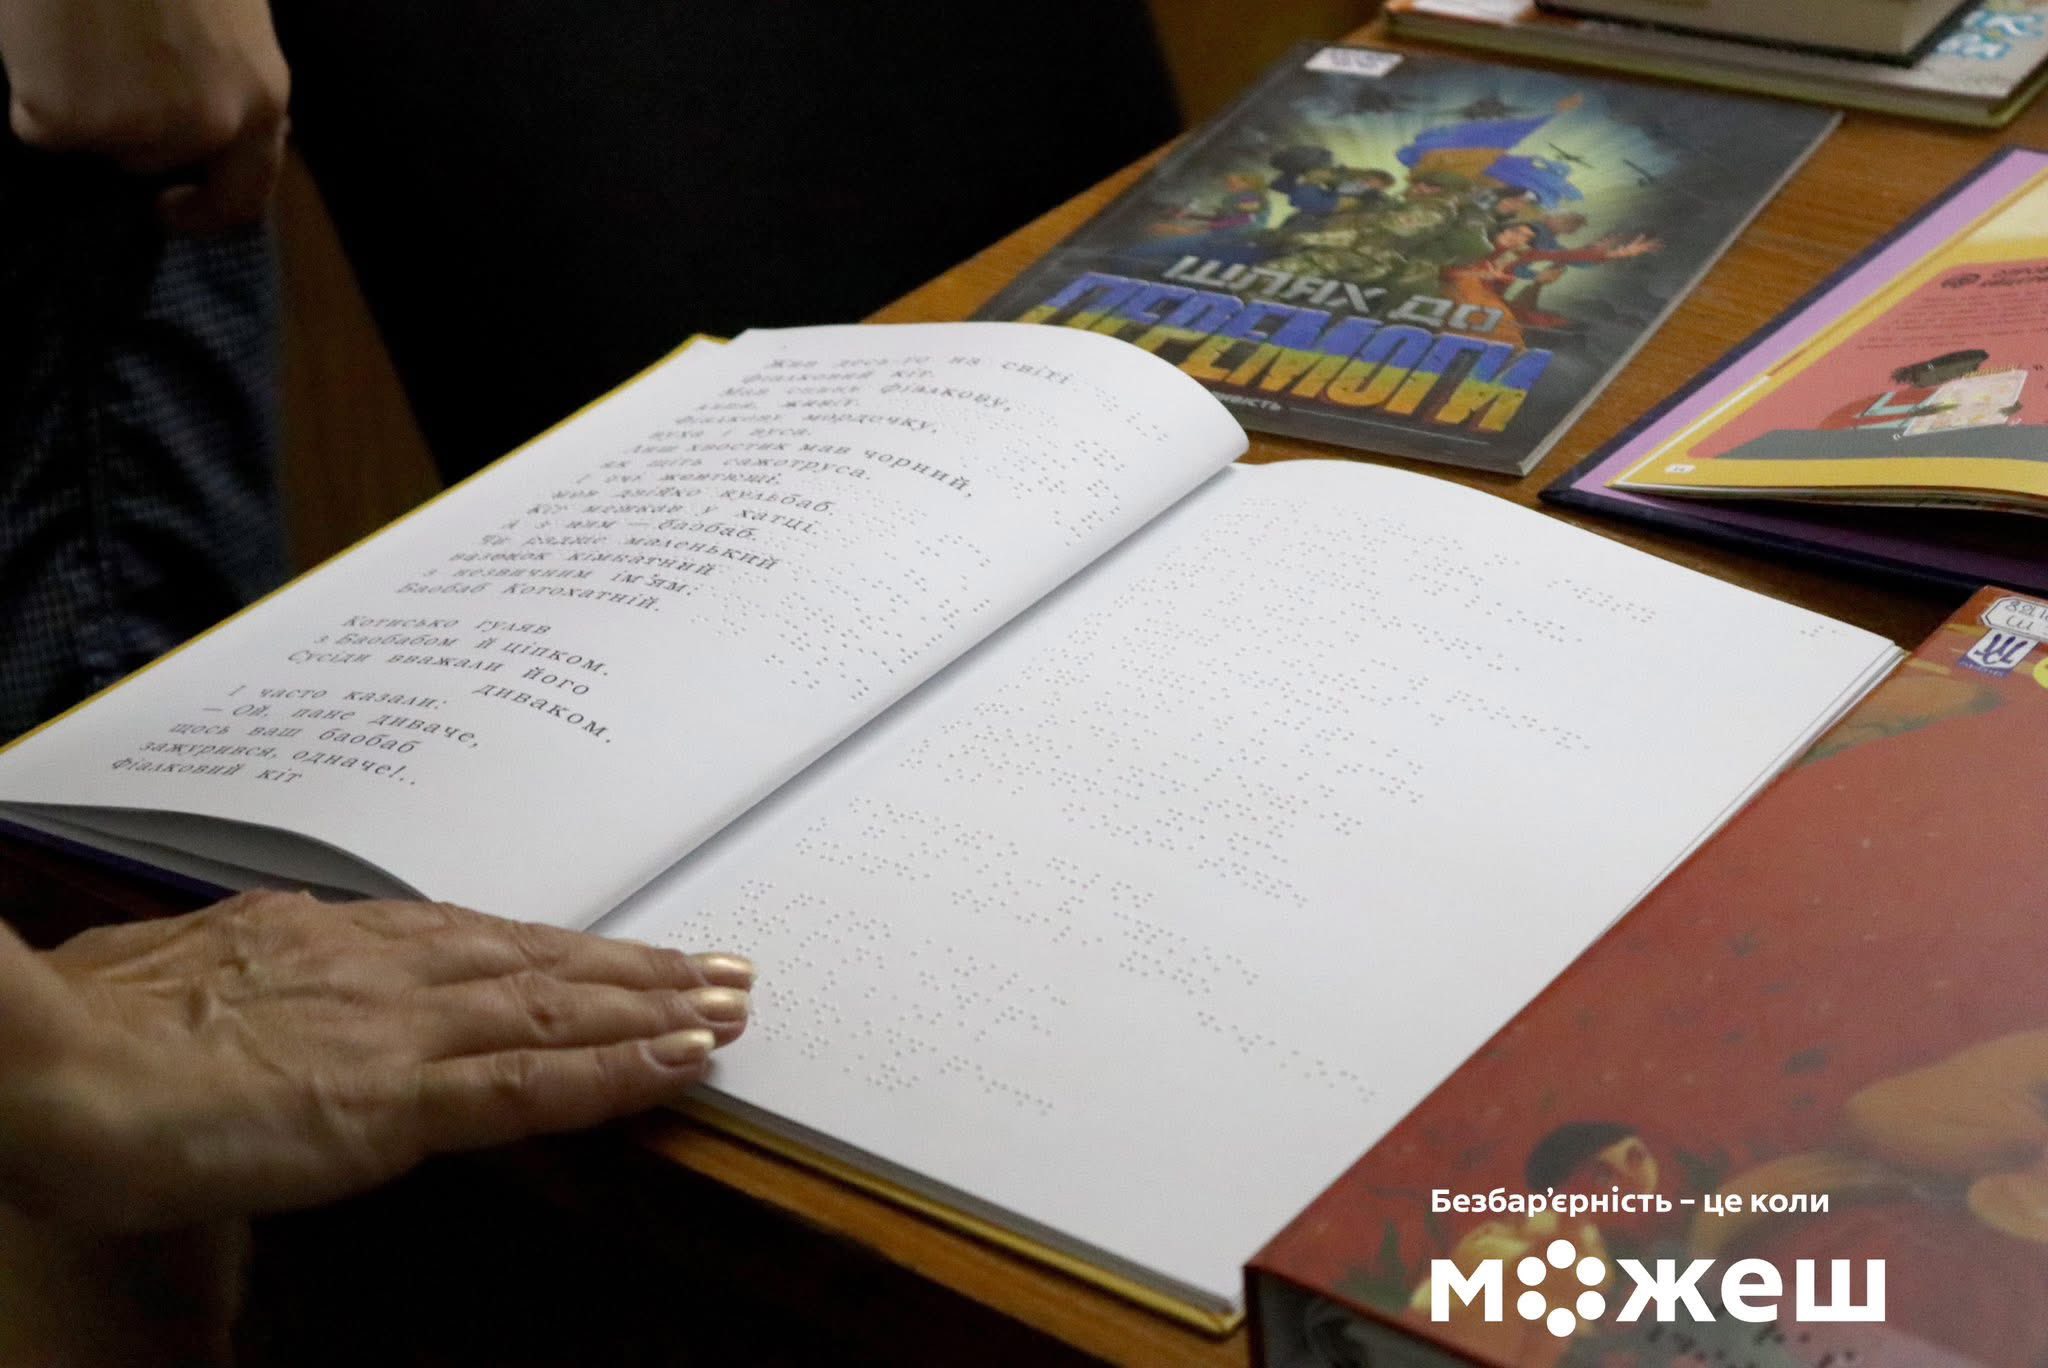 Жив десь-то на світі
фіалковий кіт.
Мав спинку фіалкову,
лапи, живіт.
Фіалкову мордочку,
вуха і вуса.
Лиш хвостик мав чорний,
як щіть сажотруса.
І очі жовтющі,
мов двійко кульбаб.
Кіт мешкав у хатці.
А з ним — баобаб.
Чи радше маленький
вазонок кімнатний
з незвичним ім'ям:
Баобаб Котохатній.
Котисько гуляв
з Баобабом й ціпком.
Сусіди вважали його
диваком.
І часто казали:
— Ой, пане диваче,
щось ваш баобаб
зажурився, одначе!..
Фіалковий кіт
ШЛЯХ ДО
ПЕРЕМОГИ
14
Безбар’єрність – це коли
можеш